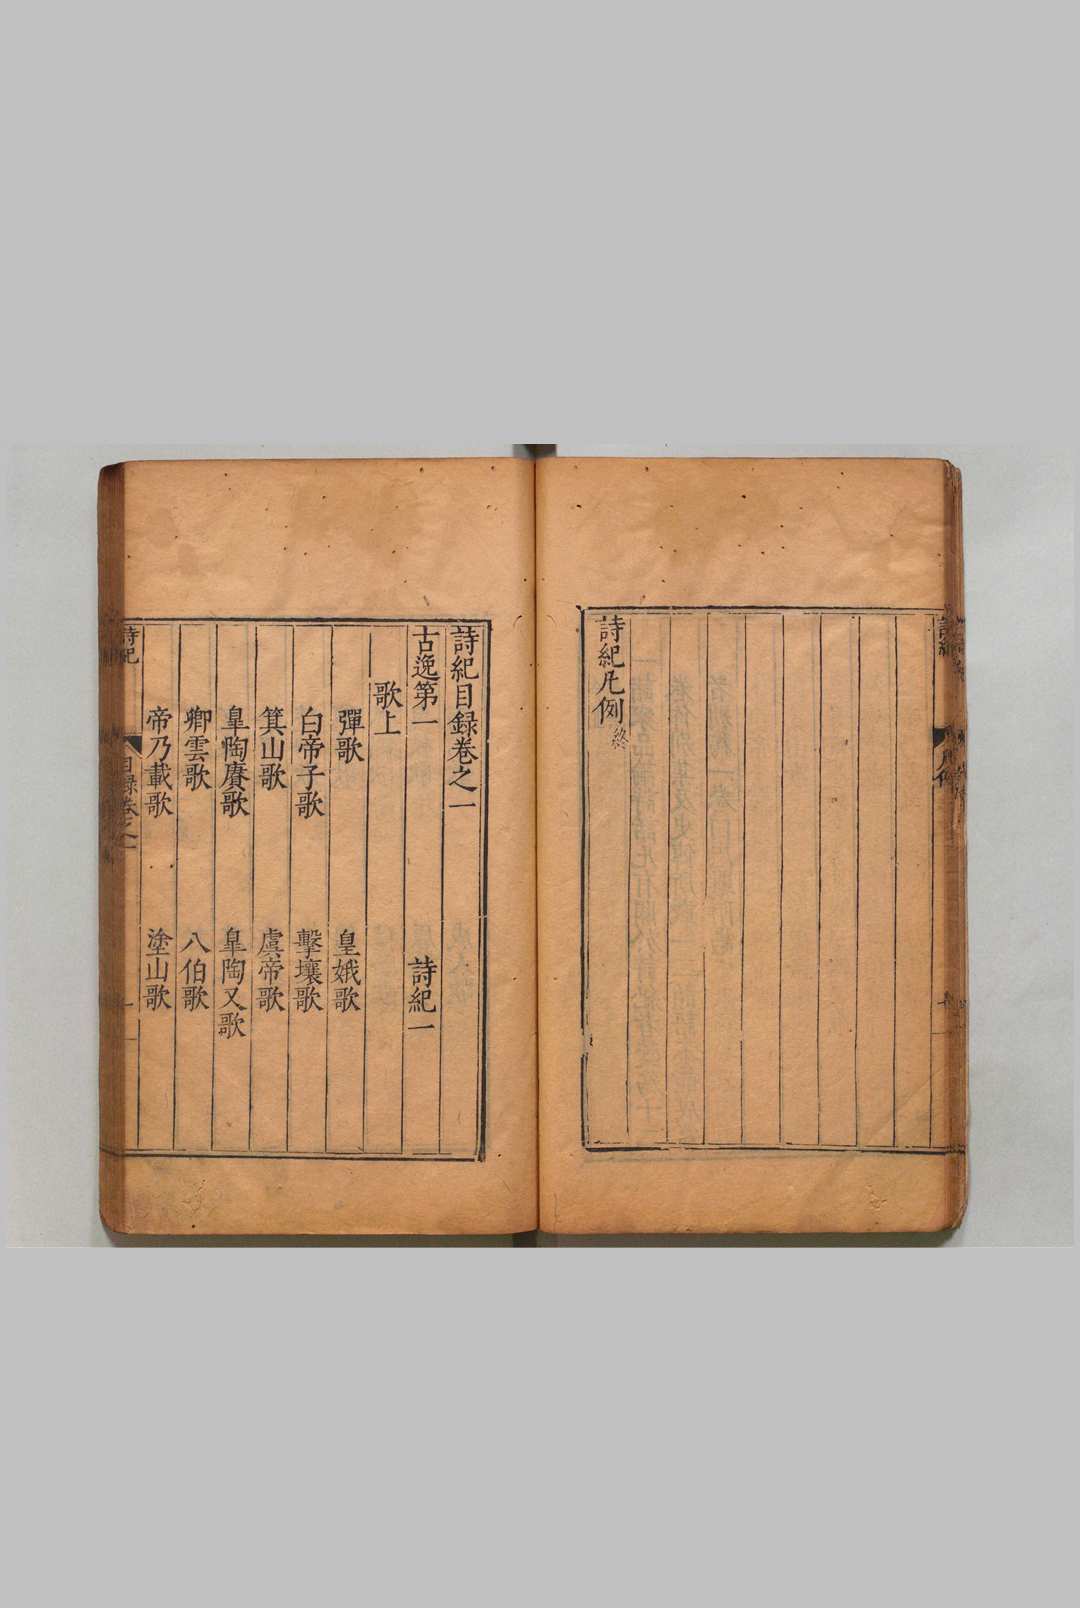 詩紀凡例終
詩紀目録卷之一
古逸第一 詩紀一
歌上
彈歌 皇娥歌
白帝子歌 擊壤歌
箕山歌 虞帝歌
皐陶賡歌 皐陶又歌
卿雲歌 八伯歌
帝乃載歌 塗山歌
詩紀 目録卷之一